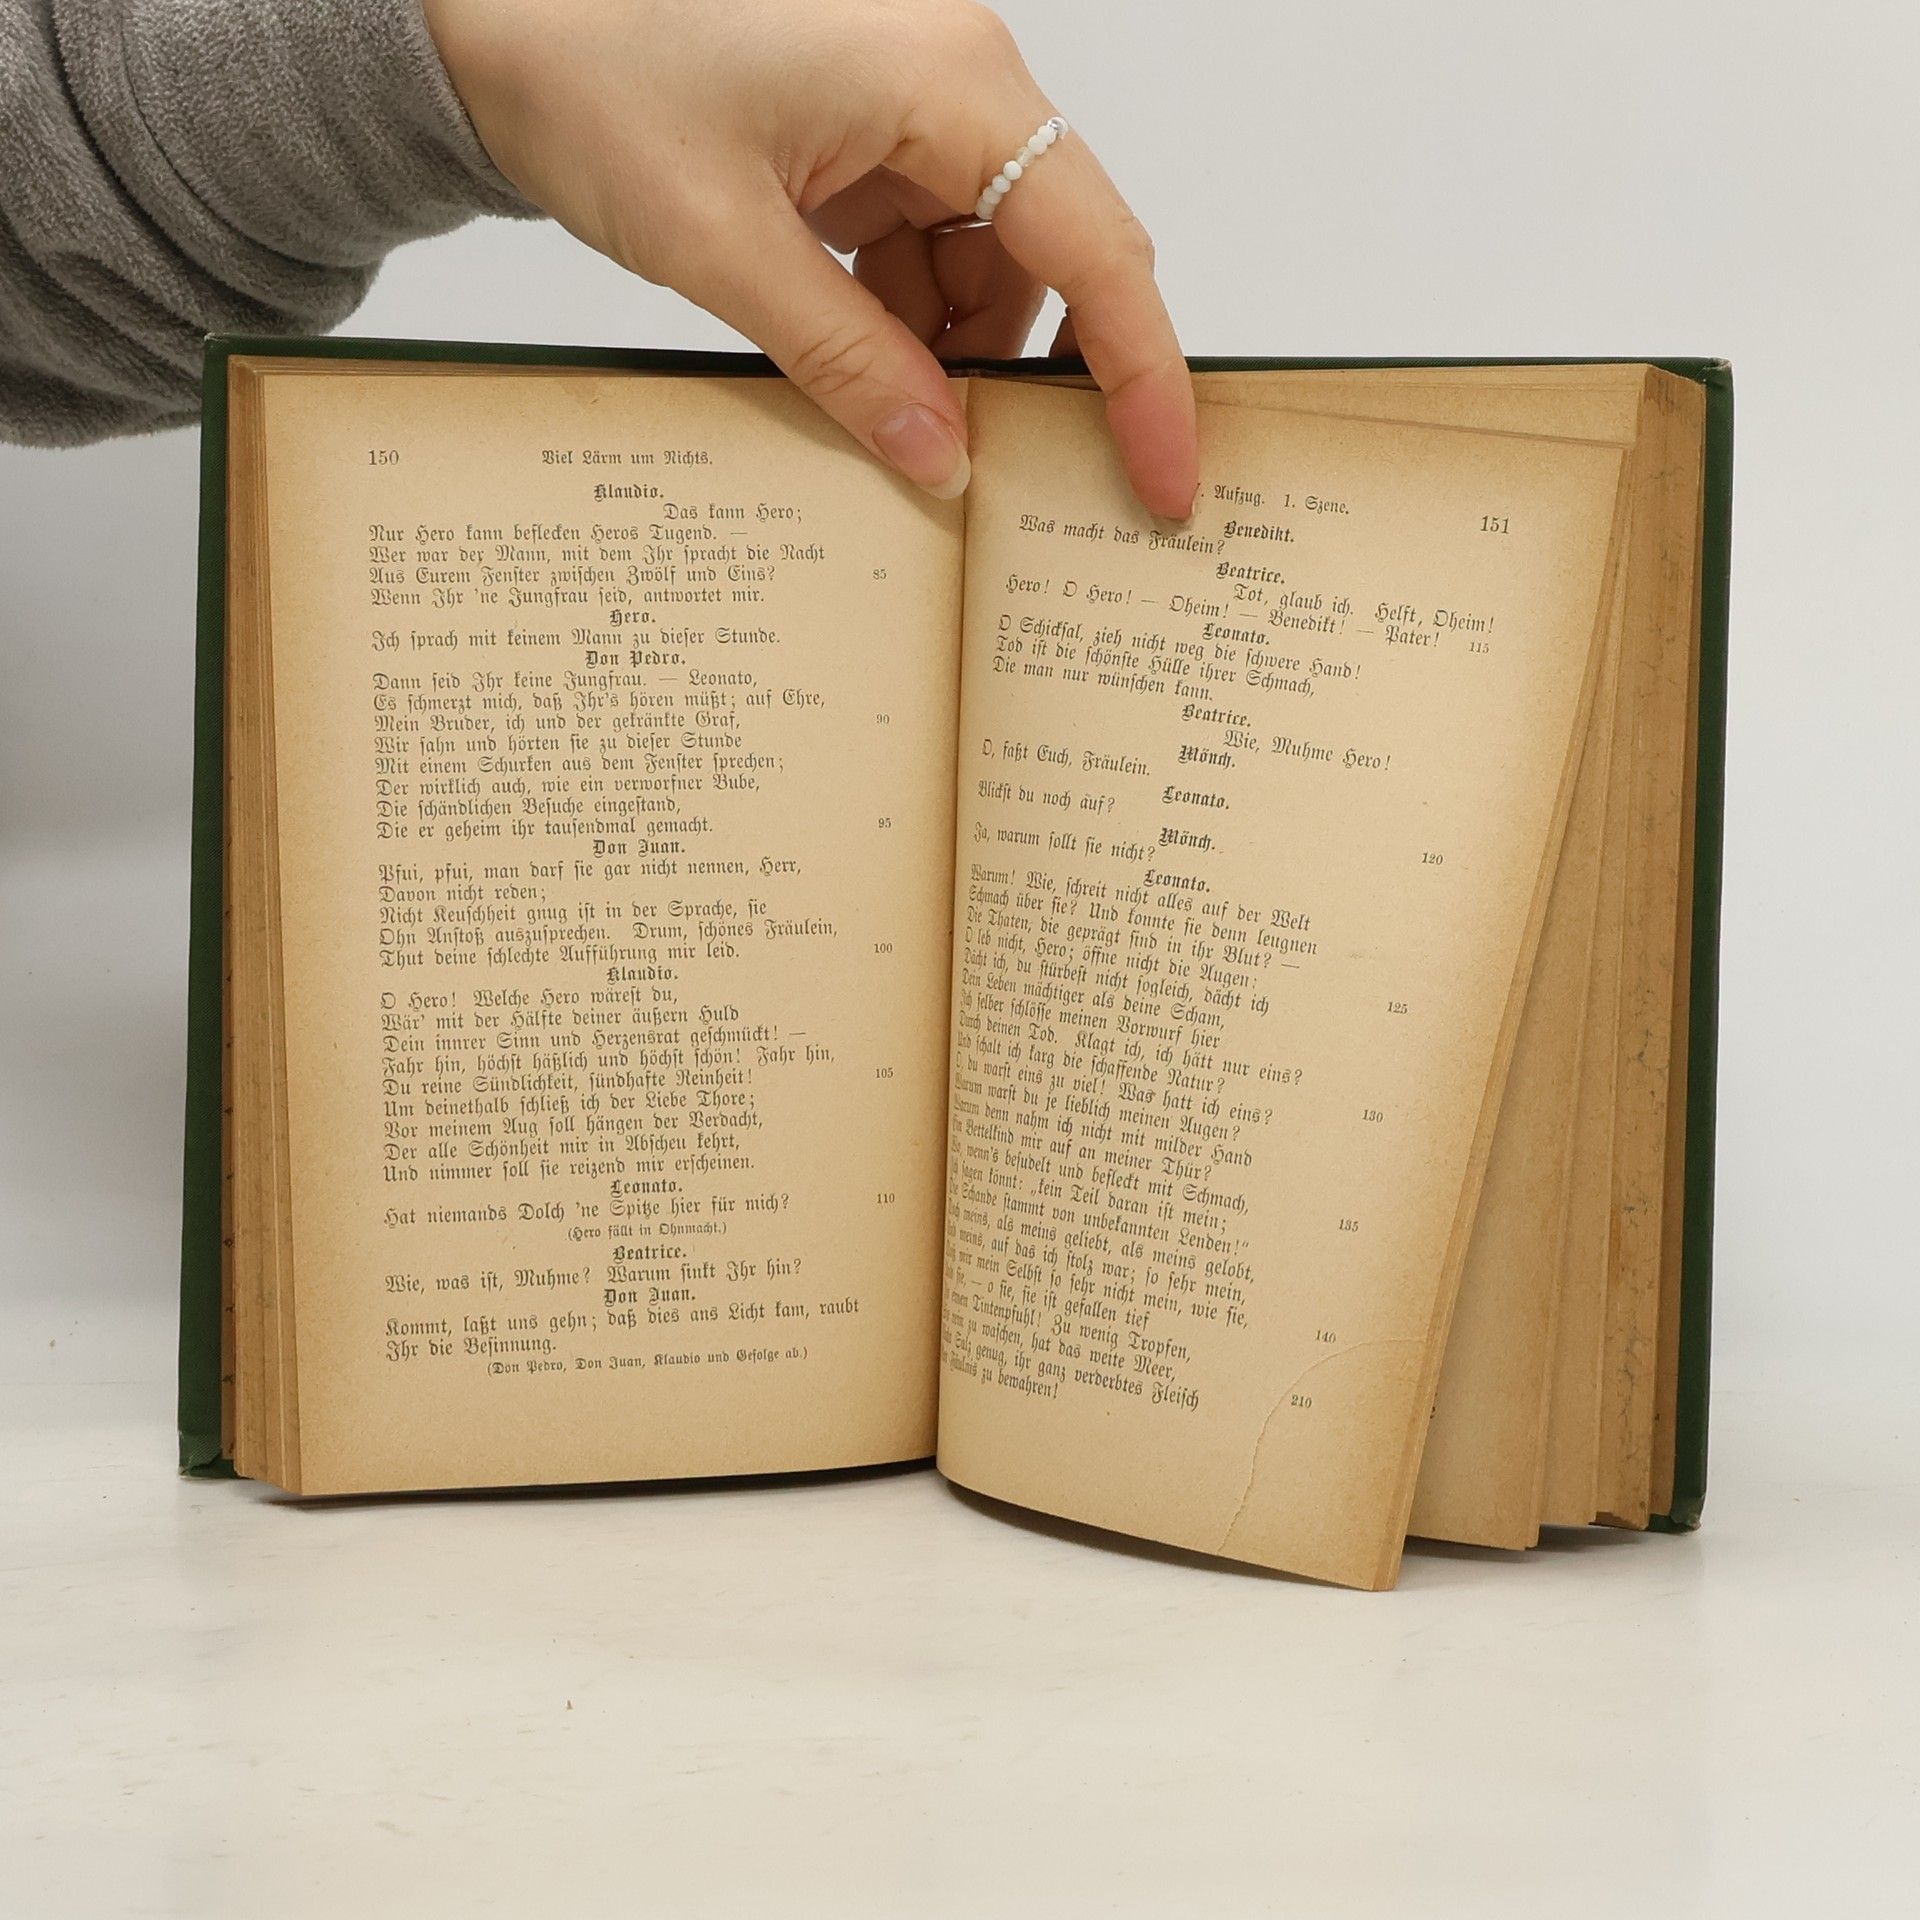 150 Viel Lärm um Nichts.
Klaudio.
Das kann Hero;
Nur Hero kann beflecken Heros Tugend. —
Wer war der Mann, mit dem Ihr spracht die Nacht
Aus Eurem Fenster zwischen Zwölf und Eins? 85
Wenn Ihr 'ne Jungfrau seid, antwortet mir.
Hero.
Ich sprach mit keinem Mann zu dieser Stunde.
Don Pedro.
Dann seid Ihr keine Jungfrau. — Leonato,
Es schmerzt mich, daß Ihr's hören müßt; auf Ehre,
Mein Bruder, ich und der gekränkte Graf, 90
Wir sahn und hörten sie zu dieser Stunde
Mit einem Schurken aus dem Fenster sprechen;
Der wirklich auch, wie ein verworfner Bube,
Die schändlichen Besuche eingestand,
Die er geheim ihr tausendmal gemacht. 95
Don Juan.
Pfui, pfui, man darf sie gar nicht nennen, Herr,
Davon nicht reden;
Nicht Keuschheit gnug ist in der Sprache, sie
Ohn Anstoß auszusprechen. Drum, schönes Fräulein,
Thut deine schlechte Aufführung mir leid. 100
Klaudio.
O Hero! Welche Hero wärest du,
Wär' mit der Hälfte deiner äußern Huld
Dein innrer Sinn und Herzensrat geschmückt! —
Fahr hin, höchst häßlich und höchst schön! Fahr hin,
Du reine Sündlichkeit, sündhafte Reinheit! 105
Um deinethalb schließ ich der Liebe Thore;
Vor meinem Aug soll hängen der Verdacht,
Der alle Schönheit mir in Abscheu kehrt,
Und nimmer soll sie reizend mir erscheinen.
Leonato.
Hat niemands Dolch 'ne Spitze hier für mich? 110
(Hero fällt in Ohnmacht.)
Beatrice.
Wie, was ist, Muhme? Warum sinkt Ihr hin?
Don Juan.
Kommt, laßt uns gehn; daß dies ans Licht kam, raubt
Ihr die Besinnung.
(Don Pedro, Don Juan, Klaudio und Gefolge ab.)
Aufzug. 1. Szene. 151
Benedikt.
Was macht das Fräulein?
Beatrice.
Tot, glaub ich. Helft, Oheim!
Hero! O Hero! — Oheim! — Benedikt! — Pater! 115
Leonato.
O Schicksal, zieh nicht weg die schwere Hand!
Tod ist die schönste Hülle ihrer Schmach,
Die man nur wünschen kann.
Beatrice.
Wie, Muhme Hero!
Mönch.
O, faßt Euch, Fräulein.
Leonato.
Blickst du noch auf?
Mönch.
Ja, warum sollt sie nicht? 120
Leonato.
Warum! Wie, schreit nicht alles auf der Welt
Schmach über sie? Und konnte sie denn leugnen
Die Thaten, die geprägt sind in ihr Blut? —
O leb nicht, Hero; öffne nicht die Augen:
Dächt ich, du stürbest nicht sogleich, dächt ich 125
Dein Leben mächtiger als deine Scham,
Ich selber schlösse meinen Vorwurf hier
Durch deinen Tod. Klagt ich, ich hätt nur eins?
Und schalt ich karg die schaffende Natur?
O, du warst eins zu viel! Was hatt ich eins? 130
Warum warst du je lieblich meinen Augen?
Warum denn nahm ich nicht mit milder Hand
Ein Bettelkind mir auf an meiner Thür?
Wo, wenn's besudelt und befleckt mit Schmach,
Ich sagen könnt: „kein Teil daran ist mein; 135
Die Schande stammt von unbekannten Lenden!“
Doch meins, als meins geliebt, als meins gelobt,
meins, auf das ich stolz war; so sehr mein,
Daß mir mein Selbst so sehr nicht mein, wie sie,
sie, — o sie, sie ist gefallen tief 140
einen Tintenpfuhl! Zu wenig Tropfen,
rein zu waschen, hat das weite Meer,
Salz genug, ihr ganz verderbtes Fleisch
Fäulnis zu bewahren! 210